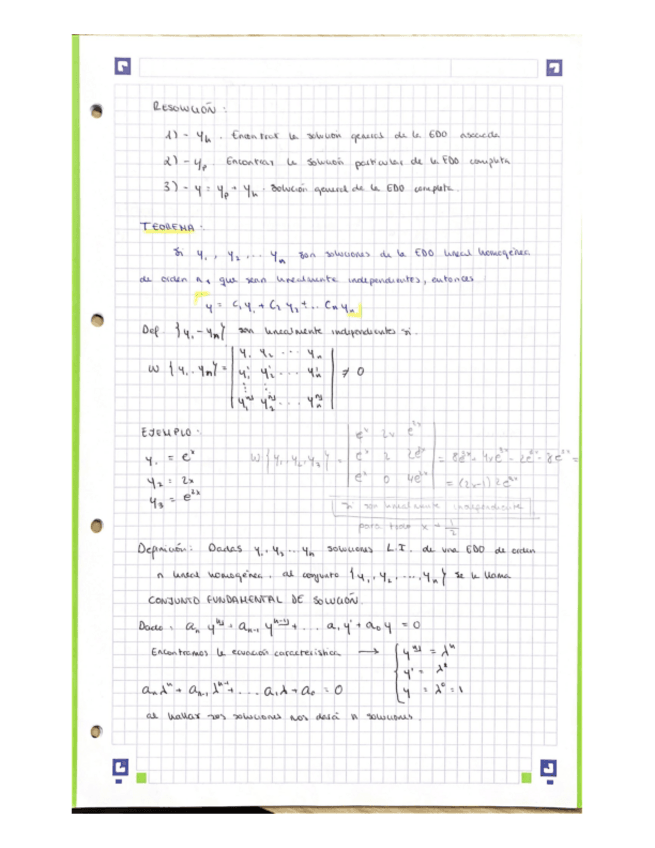 RESOLUCIÓN:
1) - yₕ. Encontrar la solución general de la EDO asociada
2) - yₚ. Encontrar la solución particular de la EDO completa
3) - y = yₚ + yₕ. Solución general de la EDO completa.
TEOREMA:
Si y₁, y₂ ... yₙ son soluciones de la EDO lineal homogénea
de orden n, que sean linealmente independientes, entonces
y = C₁y₁ + C₂y₂ + ... Cₙyₙ
Def. {y₁ - yₙ} son linealmente independientes si.
W {y₁ .. yₙ} = | y₁ y₂ ... yₙ |
| y₁' y₂' ... yₙ' | ≠ 0
EJEMPLO:
y₁ = eˣ
y₂ = 2x
y₃ = e²ˣ
W {y₁, y₂, y₃} = | eˣ 2x e²ˣ |
| eˣ 2 2e²ˣ |
| eˣ 0 4e²ˣ |
= (2x-1) 2e³ˣ
Si son linealmente independiente
para todo x ≠ 1/2
Definición: Dadas y₁, y₂ ... yₙ soluciones L.I. de una EDO de orden
n lineal homogénea, al conjunto {y₁, y₂, ..., yₙ} se le llama
CONJUNTO FUNDAMENTAL DE SOLUCIÓN.
Dada: aₙ y⁽ⁿ⁾ + aₙ₋₁ y⁽ⁿ⁻¹⁾ + ... a₁ y' + a₀ y = 0
Encontramos la ecuación característica → { y⁽ⁿ⁾ = λⁿ
y' = λ
y = λ⁰ = 1
aₙ λⁿ + aₙ₋₁ λⁿ⁻¹ + ... a₁ λ + a₀ = 0
al hallar sus soluciones nos dará n soluciones.